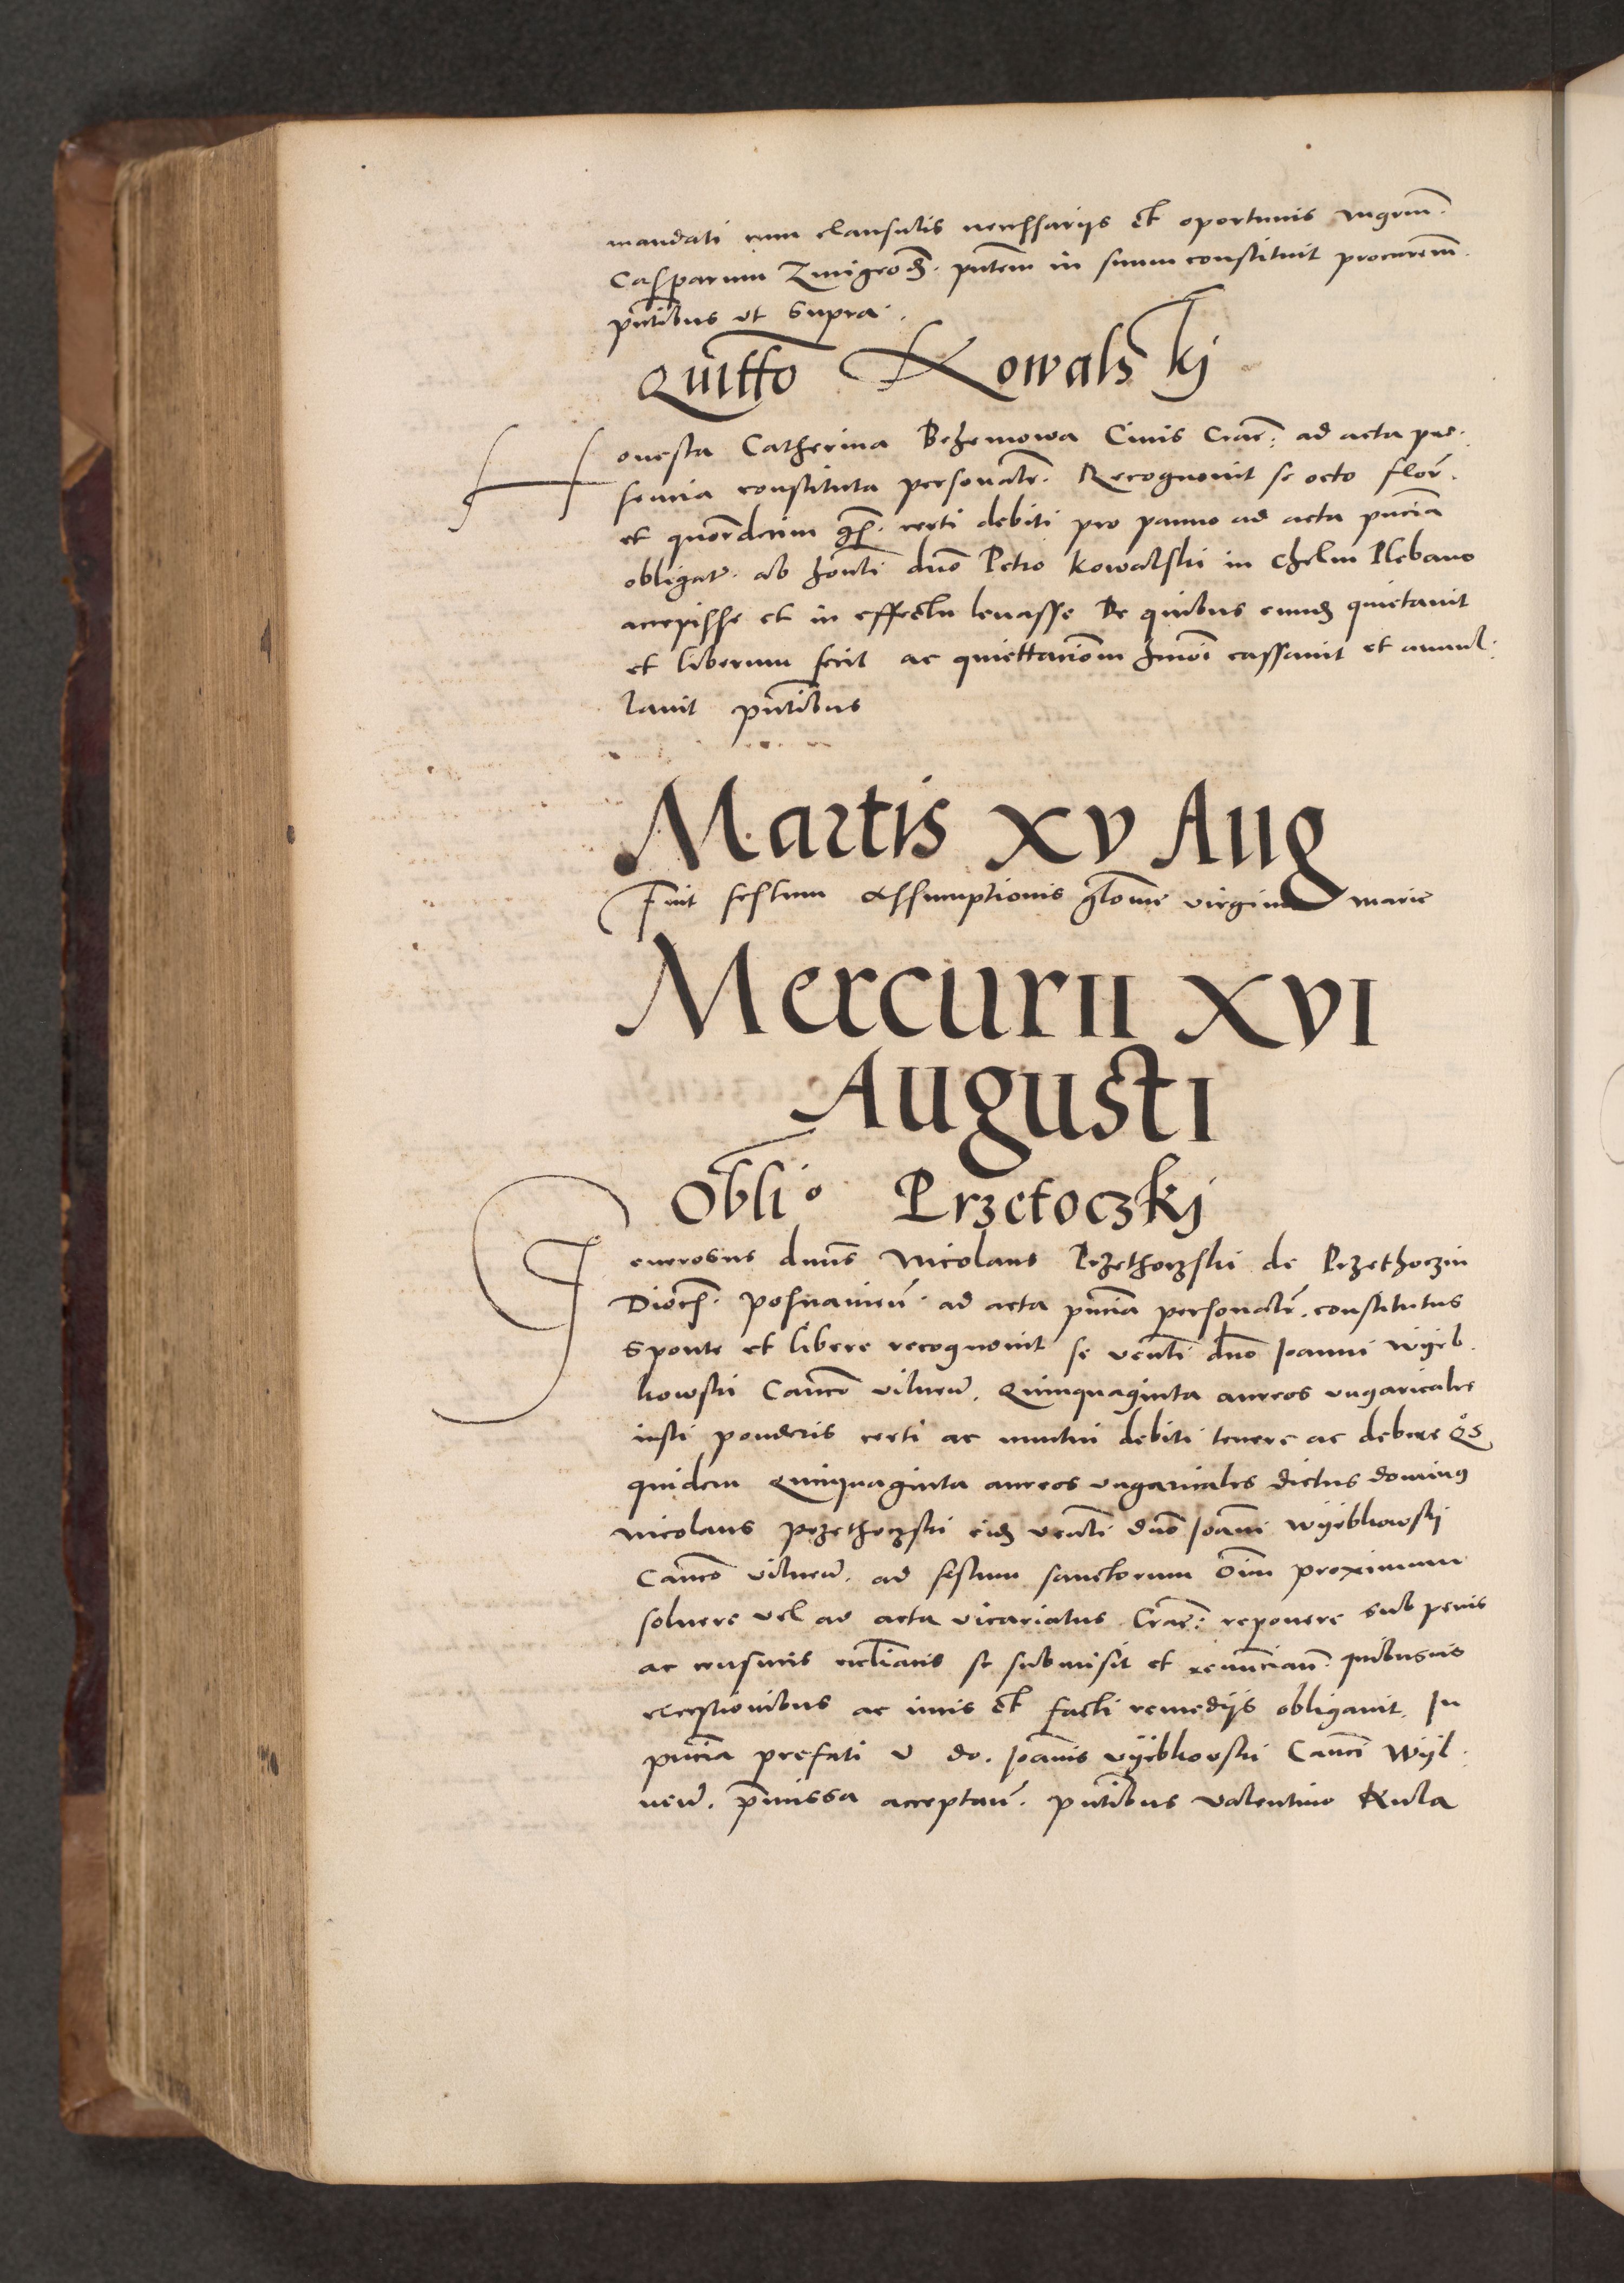 mandati cum clausulis necessariis et oportunis mgrm̄.
Casparum Zmigrod. pn̄tem in suum constituit procurem̄.
pn̄tibus ut supra.
Quitt̄o Kowalskj
Honesta Catherina Behemowa Civis Crac̄: ad acta pre-
sencia constituta personal̄r. Recognovit se octo flor̄.
et quor̄decim gr̄. certi debiti pro panno ad acta pn̄cia
obligat. ab hon̄li dn̄o Petro Kowalski in Chelm Plebano
accepisse et in effectu levasse De quibus eund quietavit
et liberum fecit ac quiettacio͞m hm̄oi cassavit et annul-
lavit pn̄tibus
Martis XV Aug
Fuit festum Assumptionis glo͞se virginis marie
Mercurii XVI
Augusti
Oblio Przetoczkj
Generosus dn̄us Nicolaus Przethoczski de Przethoczin
Dioces. Posnanien̄. ad acta pn̄cia personal̄r. constitutus
Sponte et libere recognovit se ven̄li dn̄o Joanni Wyrb-
kowski Can͞co vilnen̄. Quinquaginta aureos ungaricales
iusti ponderis certi ac mutui debiti tenere ac debere Qos
quidem Quinquaginta aureos ungaricales dictus dominus
Nicolaus Przethoczski eid ven̄li dn̄o Joan̄i Wyrbkowskj
Can͞co vilnen̄. ad festum sanctorum o͞im proximum
solvere vel ad acta vicariatus Crac̄: reponere sub penis
ac censuris eccl̄iacis se submisit et renuncian̄. quibusvis
exceptionibus ac iuris et facti remediis obligavit. In
pn̄cia prefati v do. Joan̄is vyrbkovski Can͞ci Wyl-
nen̄. pr̄missa acceptan̄. pn̄tibus Valentino Kula